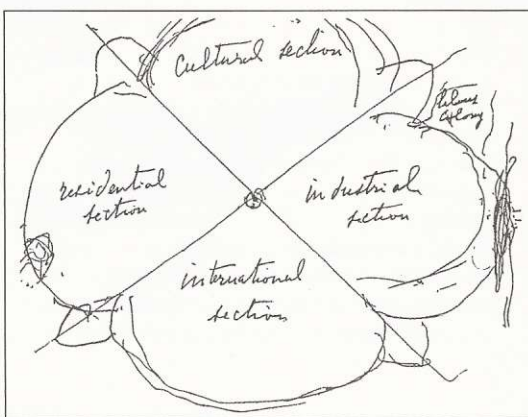 cultural section
colony
residential
section
industrial
section
international
section